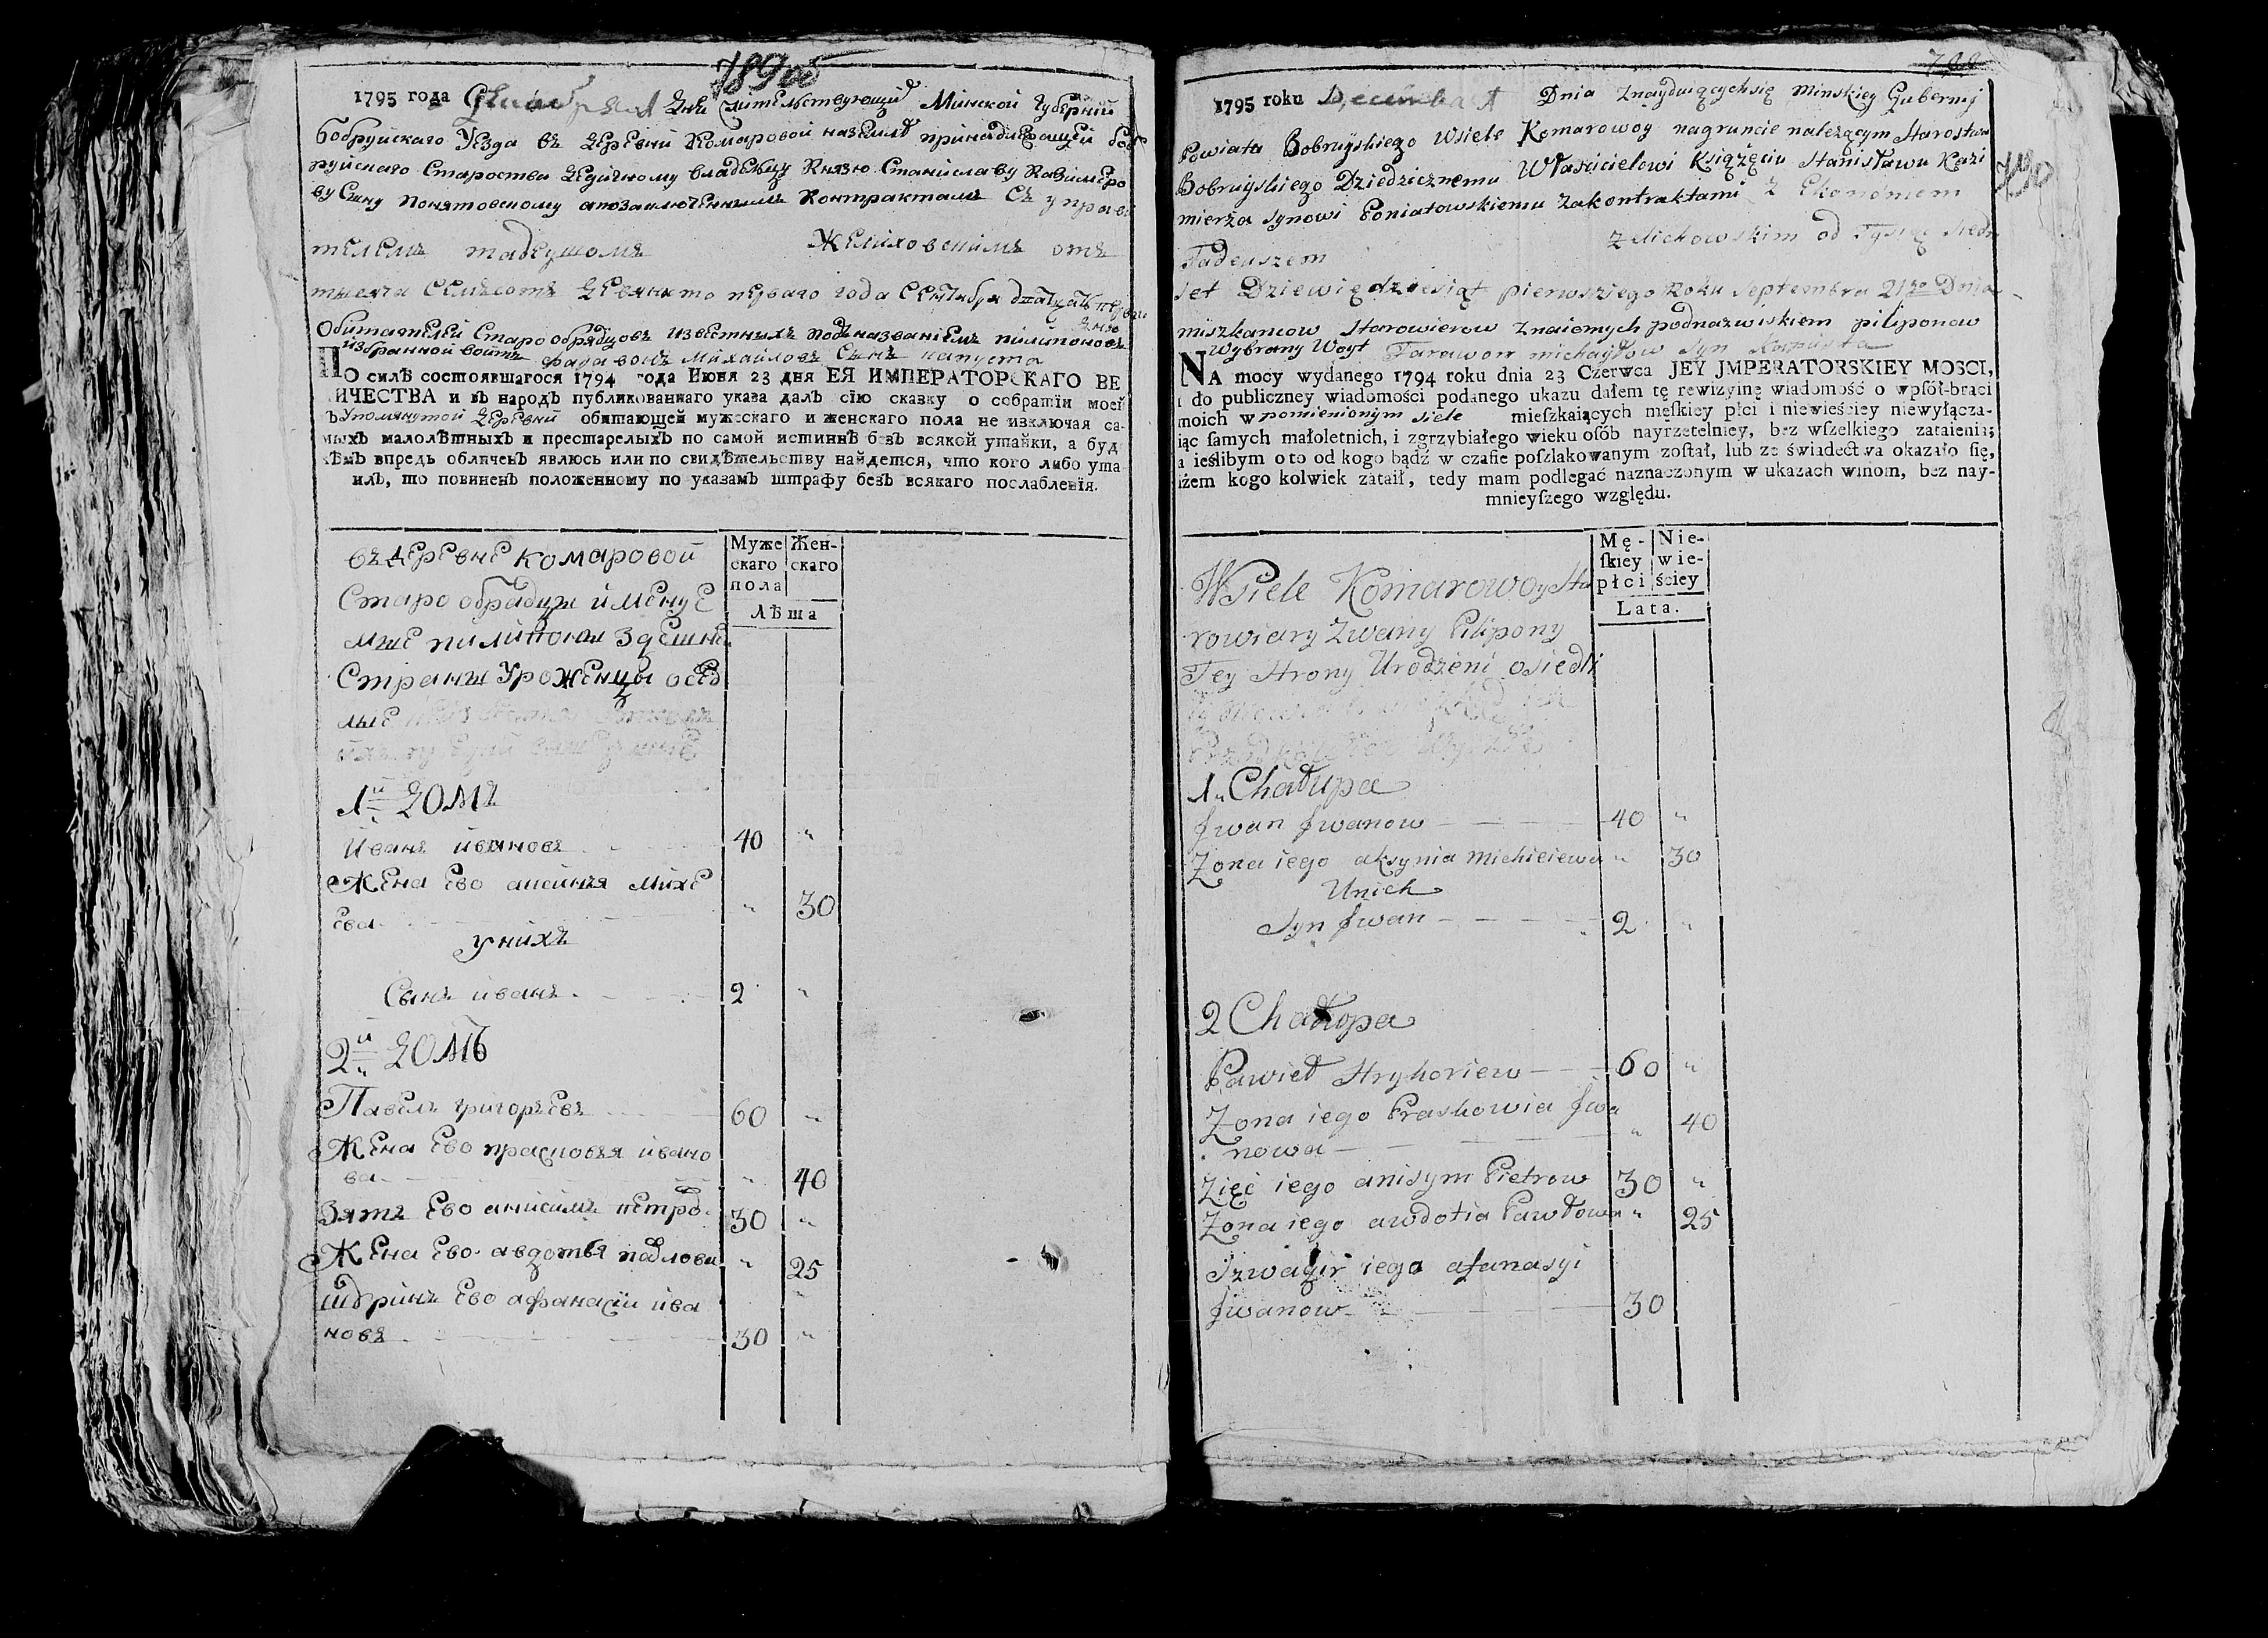 789об
1795 года Декабря дня жительствующий Минской Губернии
Бобруйскаго Уезда въ деревни Комаровой наземлѣ принадлежащей боб
руйскаго Староства Едичному владельцу Князю Станиславу Казимеро
ву Сыну Понятовскому апозаключеннымъ Контрактамъ Съ управи
телемъ тадеушомъ Желиховскимъ отъ
тысяча Семьсотъ девяносто перваго года Сентября дватцать перваго
дня
Обитателей Старообрядцовъ известныхъ подъ названіемъ пилипоновъ
избранной войтъ Фараѳонъ Михайловъ Сынъ капуста
ПО силѣ состоявшагося 1794 года Июня 23 дня ЕЯ ИМПЕРАТОРСКАГО ВЕ
ИЧЕСТВА и въ народъ публикованнаго указа далъ сію сказку о собратіи моей
ъ Упомянутой деревни обитающей мужескаго и женскаго пола не изключая са
мыхъ малолѣтныхъ и престарелыхъ по самой истиннѣ безъ всякой утайки, а буд
кѣмъ впредь обличенъ явлюсь или по свидѣтельству найдется, что кого либо ута
илъ, то повиненъ положенному по указамъ штрафу безъ всякаго послабленія.
въ деревне комаровой
Старообрядцы именуе
мые пилипоны здешне
Страны Уроженцы осед
лые
Муже Жен-
скаго скаго
пола
Лѣта
1й домъ
Иванъ ивановъ 40 „
Жена Ево аксинья михе
ева „ 30
у нихъ
Сынъ иванъ 2 „
2й домъ
Павелъ григорьевъ 60 „
Жена Ево прасковья ивано
ва „ 40
Зять Ево анисимъ петро 30 „
Жена Ево авдотья павлова „ 25
Шуринъ Ево афанасіи ива
новъ 30 „
790
1795 roku Decembra Dnia znayduiącychsię Minskiey Gubernij
Powiata Bobruyskiego Wsiele Komarowoy nagruncie nalezącym Starostwa
Bobruyskiego Dziedzicznemu Własicielowi Książęciu Stanisławu Kazi
mierza synowi Poniatowskiemu zakontraktami z Ekonomem
Tadeuszem Zelichowskim od Tysiąc siedm
set Dziewiędziesiąt pierwsziego Roku Septembra 21go Dnia
miszkancow starowierow znaiomych podnazwiskiem piliponow
Wybrany Woyt Farawon michayłow Syn Kapusta
NA mocy wydanego 1794 roku dnia 23 Czerwca JEY JMPERATORSKIEY MOSCI,
i do publiczney wiadomości podanego ukazu dałem tę rewizyinę wiadomość o wpſół-braci
moich w pomienionym siele mieſzkaiących męſkiey płci i niewieściey niewyłącza-
iąc ſamych małoletnich, i zgrzybiałego wieku osób nayrzetelniey, bez wſzelkiego zataienia;
a ieślibym o to od kogo bądź w czaſie poſzlakowanym został, lub ze świadectwa okazało ſię,
iżem kogo kolwiek zataił, tedy mam podlegać naznaczonym w ukazach winom, bez nay-
mnieyſzego względu.
Wsiele Komarowoy Sta
rowiary Zwany Pilipony
Tey Strony Urodzeni osiedli
Mę- Nie-
ſkiey wie-
płci ściey
Lata.
1 Chałupa
Jwan Jwanow 40 „
Zona iego aksynia Michieiewa „ 30
Unich
Syn Jwan 2 „
2 Chałupa
Paweł Hryhoriew 60 „
Zona iego Praskowia Jwa
nowa „ 40
Zięć iego anisym Pietrow 30 „
Zona iego awdotia Pawłowa „ 25
Szwagir iego afanasyi
Jwanow 30